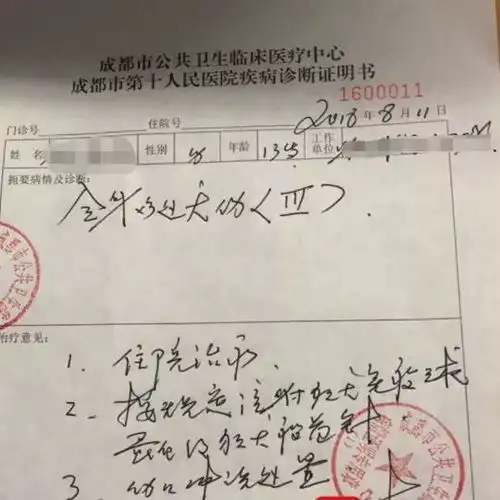 成都市公共卫生临床医疗中心
成都市第十人民医院疾病诊断证明书
1600011
门诊号 住院号 2018年8月11日
姓名 性别 女 年龄 13岁 工作单位
扼要病情及诊断:
全身多处犬伤〈III〉.
治疗意见:
1. 住院治疗.
2. 按规定注射狂犬免疫球
蛋白及狂犬病苗针
3 伤口冲洗处置